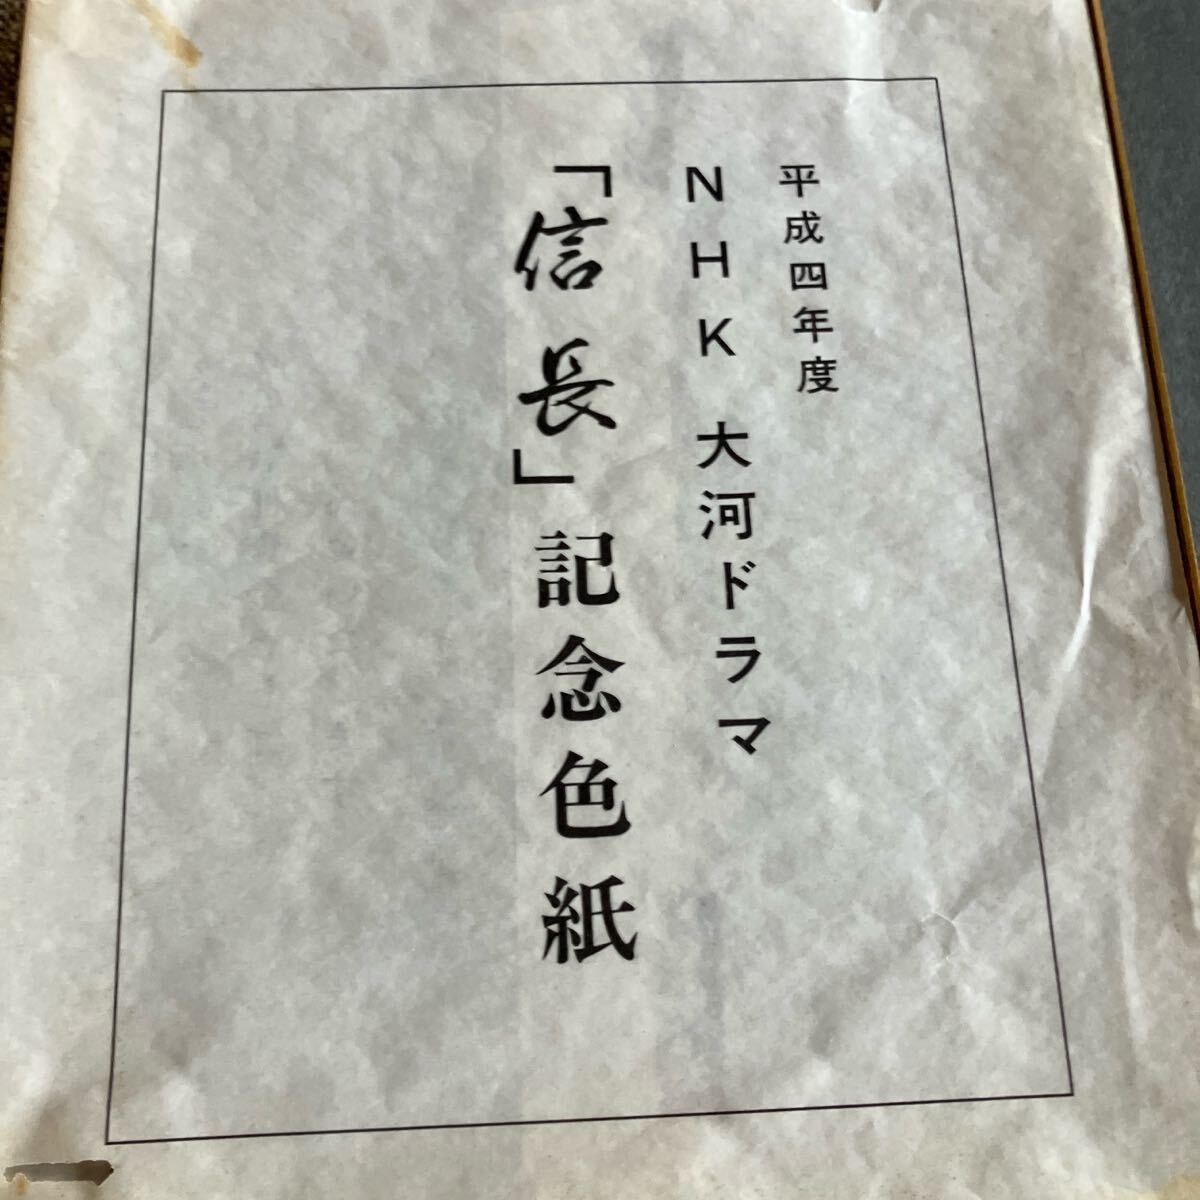 平成四年度
NHK 大河ドラマ
「信長」記念色紙